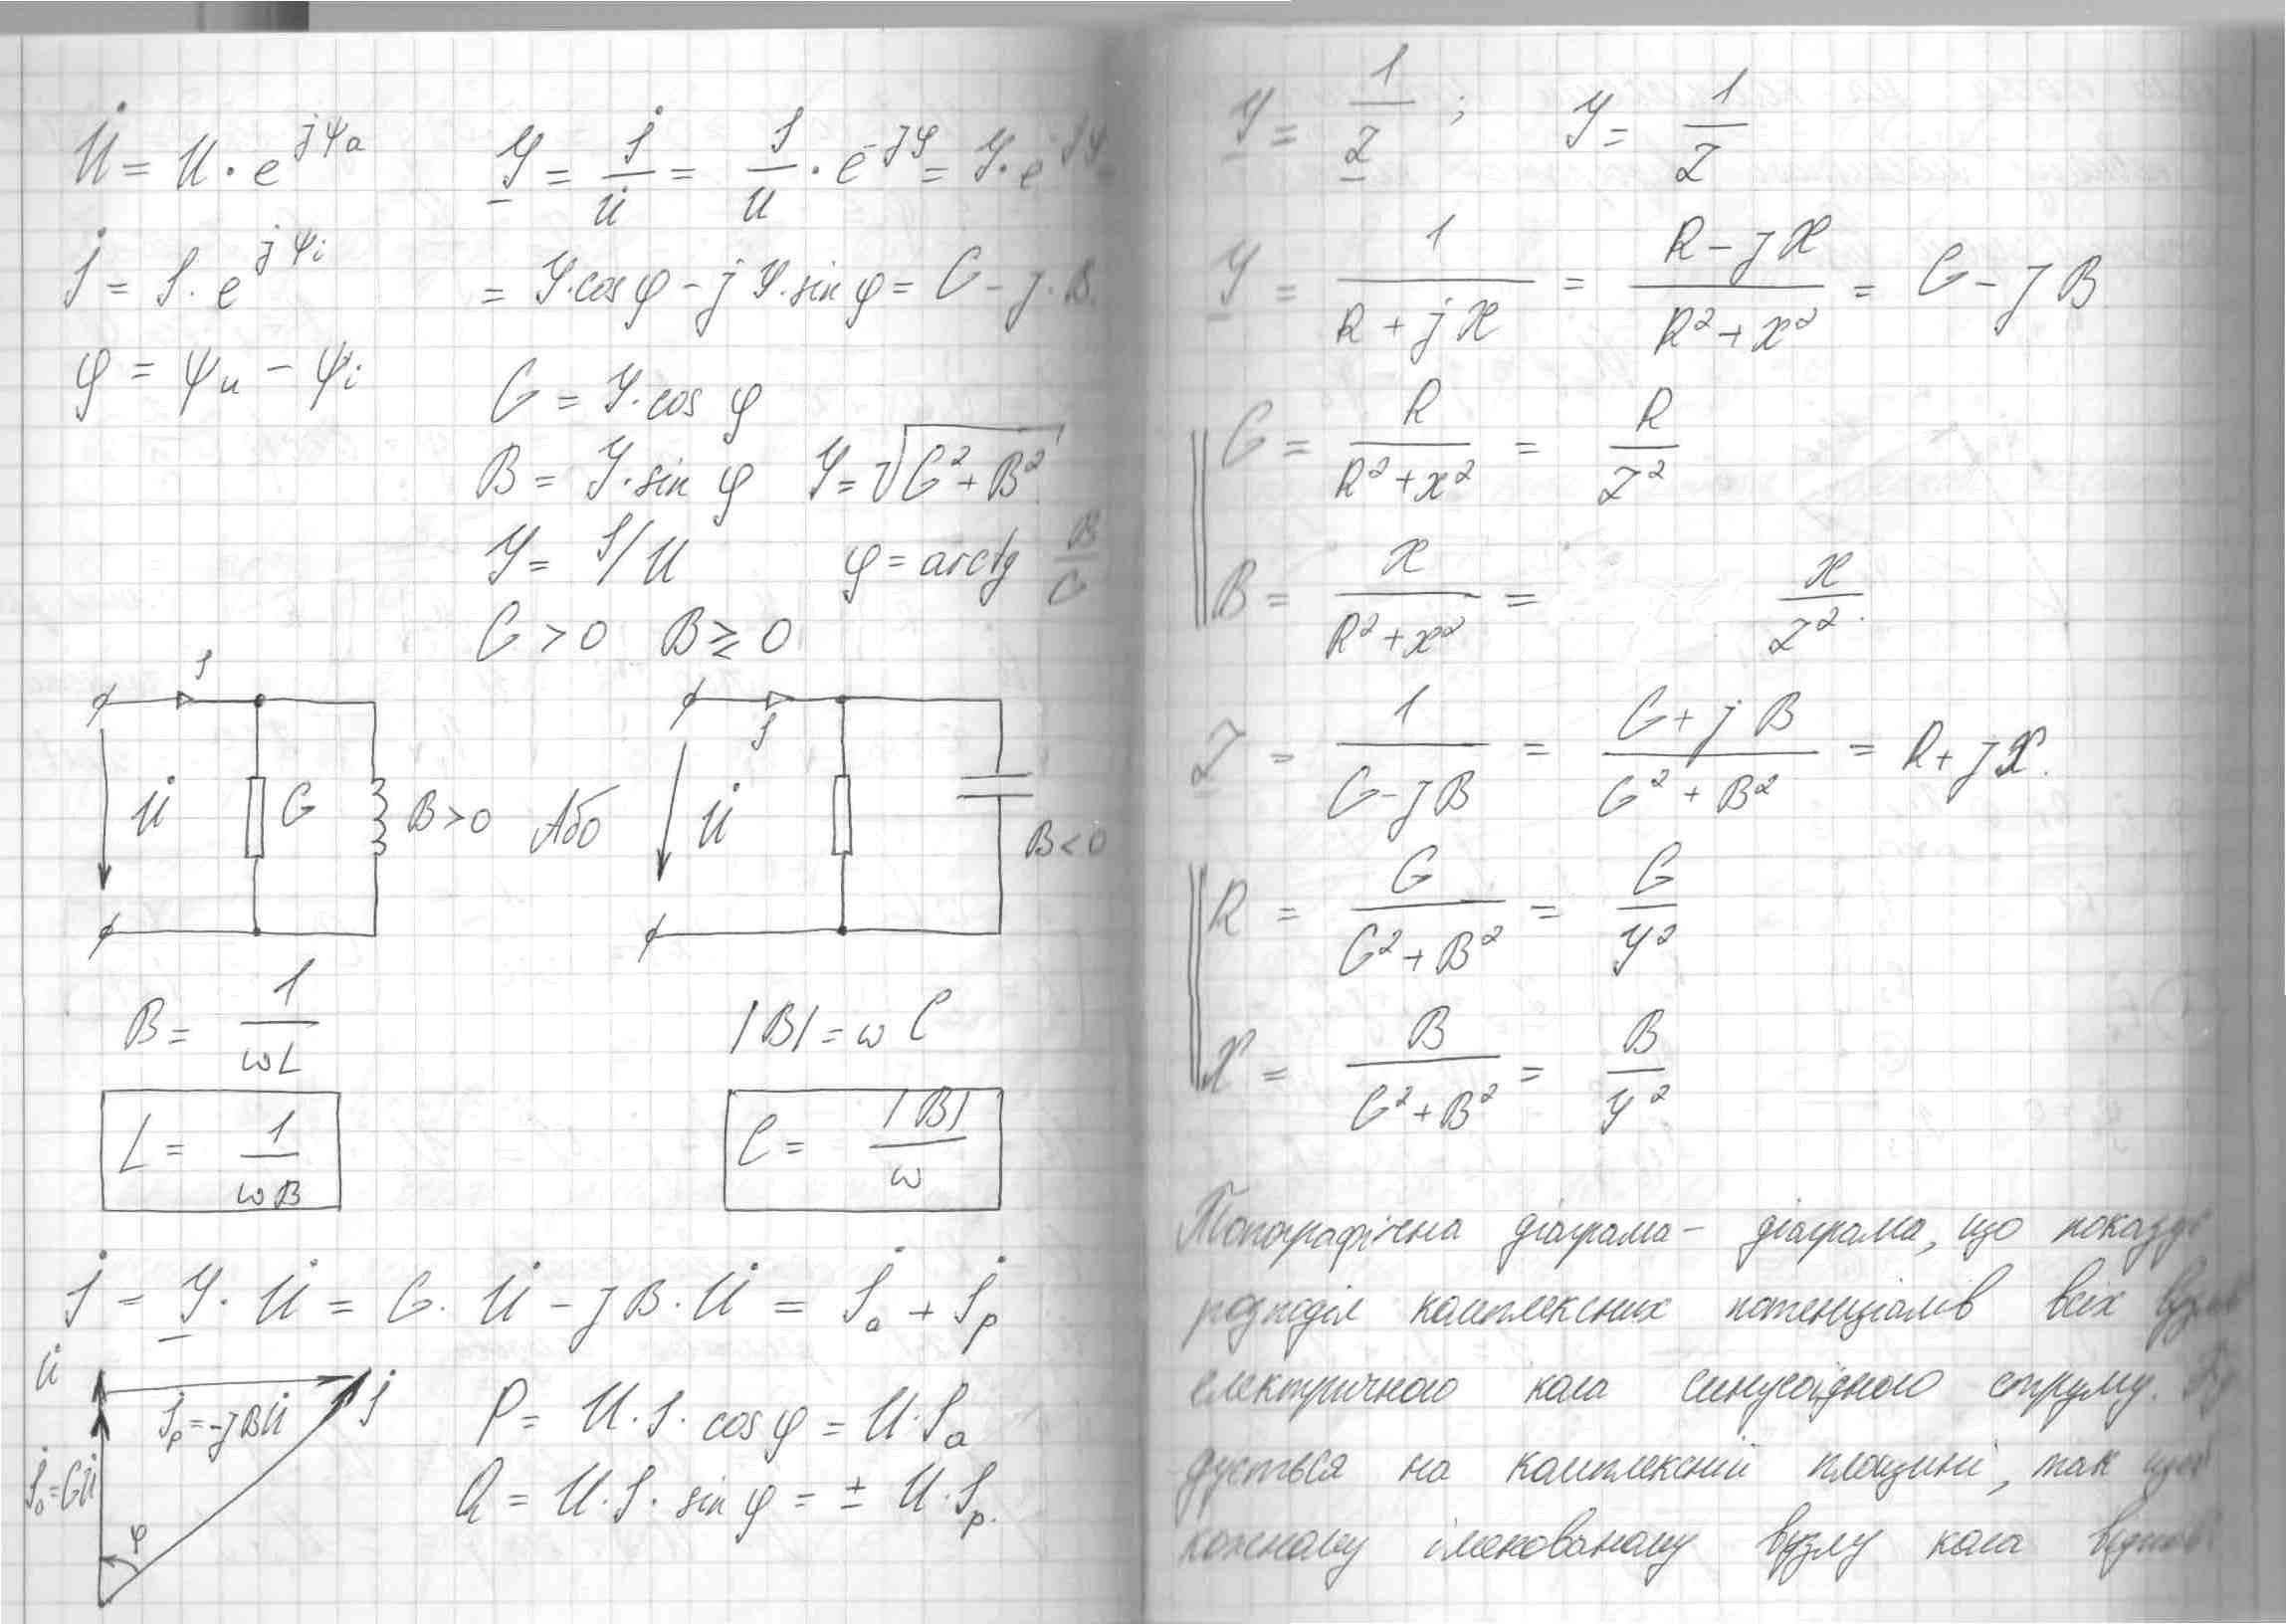 U̇ = U · e^{jψ_u}
İ = I · e^{jψ_i}
φ = ψ_u − ψ_i
Y̲ = İ/U̇ = I/U · e^{-jφ} = Y · e^{-jφ} =
= Y·cos φ − j Y·sin φ = G − j·B.
G = Y·cos φ
B = Y·sin φ Y = √(G² + B²)
Y = I/U φ = arctg B/G
G > 0 B ⩾ 0
I
U̇ G B > 0 Або
I
U̇ B < 0
B = 1/ωL
|B| = ω C
L = 1/ωB
C = |B|/ω
İ = Y̲ · U̇ = G · U̇ − jB · U̇ = İ_a + İ_p
U̇
İ_p = -jBU̇ İ
İ_a = GU̇
φ
P = U·I· cos φ = U·I_a
Q = U·I· sin φ = ± U·I_p.
Y̲ = 1/Z̲ ; Y = 1/Z
Y̲ = 1/(R + jX) = (R − jX)/(R² + X²) = G − jB
G = R/(R² + X²) = R/Z²
B = X/(R² + X²) = X/Z².
Z̲ = 1/(G − jB) = (G + jB)/(G² + B²) = R + jX.
R = G/(G² + B²) = G/Y²
X = B/(G² + B²) = B/Y²
Топографічна діаграма – діаграма, що показує
розподіл комплексних потенціалів всіх вузлів
електричного кола синусоїдного струму.
дується на комплексній площині, так щоб
кожному іменованому вузлу кола